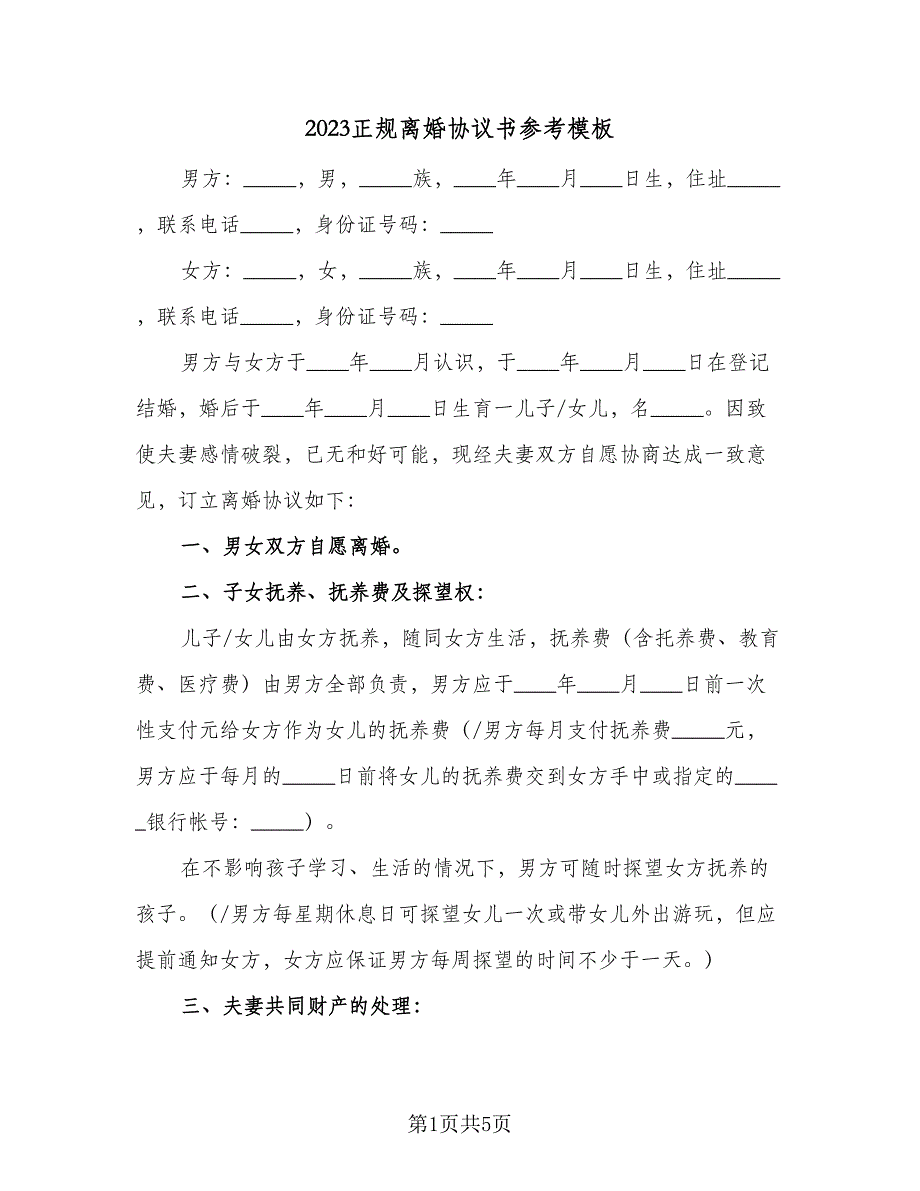 2023正规离婚协议书参考模板
男方：_____，男，_____族，____年____月____日生，住址_____
，联系电话_____，身份证号码：_____
女方：_____，女，_____族，____年____月____日生，住址_____
，联系电话_____，身份证号码：_____
男方与女方于____年____月认识，于____年____月____日在登记
结婚，婚后于____年____月____日生育一儿子/女儿，名_____。因致
使夫妻感情破裂，已无和好可能，现经夫妻双方自愿协商达成一致意
见，订立离婚协议如下：
一、男女双方自愿离婚。
二、子女抚养、抚养费及探望权：
儿子/女儿由女方抚养，随同女方生活，抚养费（含托养费、教育
费、医疗费）由男方全部负责，男方应于____年____月____日前一次
性支付元给女方作为女儿的抚养费（/男方每月支付抚养费_____元，
男方应于每月的_____日前将女儿的抚养费交到女方手中或指定的____
_银行帐号：_____）。
在不影响孩子学习、生活的情况下，男方可随时探望女方抚养的
孩子。（/男方每星期休息日可探望女儿一次或带女儿外出游玩，但应
提前通知女方，女方应保证男方每周探望的时间不少于一天。）
三、夫妻共同财产的处理：
第1页共5页